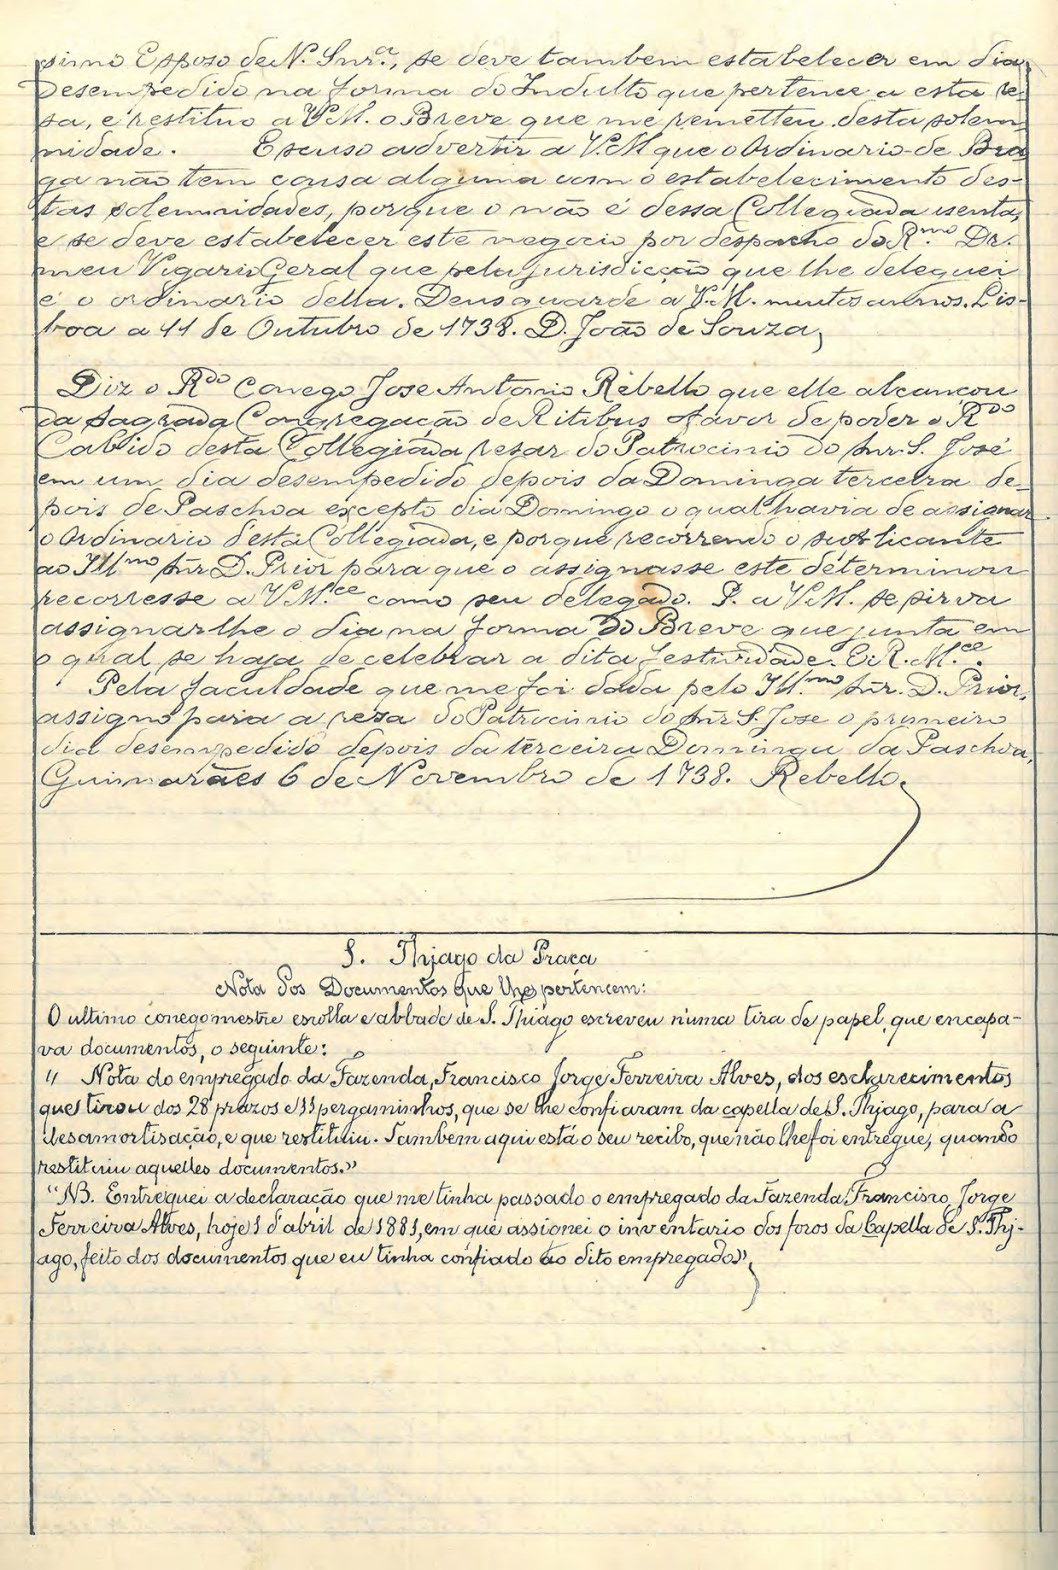 simo Esposo de N. Snr.ª, se deve tambem estabelecer em dia
desempedido na forma do Indulto que pertence a esta re-
sa, e restituo a V.M. o Breve que me remetteu desta solem-
nidade. Escuso advertir a V.M que o Ordinario de Bra
ga não tem cousa alguma com o estabelecimento des-
tas solemnidades, porque o não é dessa Collegiada isenta,
e se deve estabelecer este negocio por despacho do R.mo Dr.
meu Vigario Geral que pela jurisdicção que lhe deleguei
é o ordinario della. Deus guarde a V.M. muitos annos. Lis-
boa a 11 de Outubro de 1738. D. João de Souza,
Diz o Rdo Conego Jose Antonio Rebello que elle alcançou
da Sagrada Congregação de Ritibus favor de poder o Rdo
Cabido desta Collegiada resar do Patrocinio do Snr. S. José
em um dia desempedido depois da Dominga terceira de-
pois de Paschoa excepto dia Domingo o qual havia de assignar
o Ordinario d'esta Collegiada, e porque recorrendo o suplicante
ao Ill.mo Snr D. Prior para que o assignasse este determinou
recorresse a V M.ce como seu delegado. P. a V.M. se sirva
assignar lhe o dia na forma do Breve que junta em
o qual se haja de celebrar a dita festividade. E. R. M.ce.
Pela faculdade que me foi dada pelo Ill.mo Snr. D. Prior,
assigno para a resa do Patrocinio do Snr S. Jose o primeiro
dia desempedido depois da terceira Dominga da Paschoa,
Guimarães 6 de Novembro de 1738. Rebello.
S. Thjago da Praça
Nota dos Documentos que lhe pertencem:
O ultimo conego mestre escolla e abbade de S. Thiago escreveu n'uma tira de papel, que encapa-
va documentos, o seguinte:
" Nota do empregado da Fazenda, Francisco Jorge Ferreira Alves, dos esclarecimentos
que tirou dos 28 prazos e 11 pergaminhos, que se lhe confiaram da capella de S. Thjago, para a
desamortisação, e que restituiu. Tambem aqui está o seu recibo, que não lhe foi entregue, quando
restituiu aquelles documentos."
"NB. Entreguei a declaração que me tinha passado o empregado da Fazenda, Francisco Jorge
Ferreira Alves, hoje 1 d'abril de 1881, em que assignei o inventario dos foros da Capella de S. Thj-
ago, feito dos documentos que eu tinha confiado ao dito empregado",